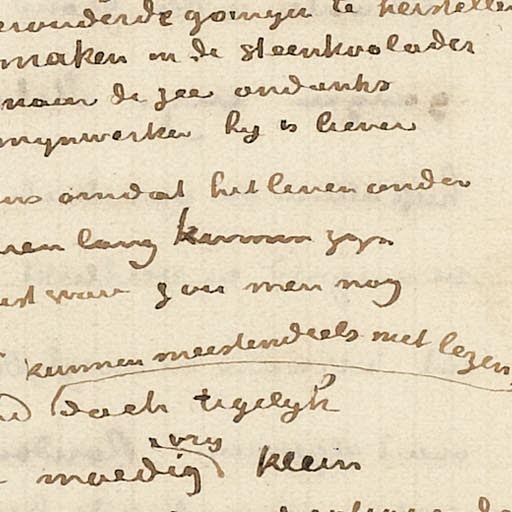 te herstellen
maken in de steenkoolader
naar de zee ondanks
mynwerker hy is liever
omdat het leven onder
lang kunnen zyn
ware zou men nog
kunnen meestendeels niet lezen
doch tegelyk
vry
moedig klein